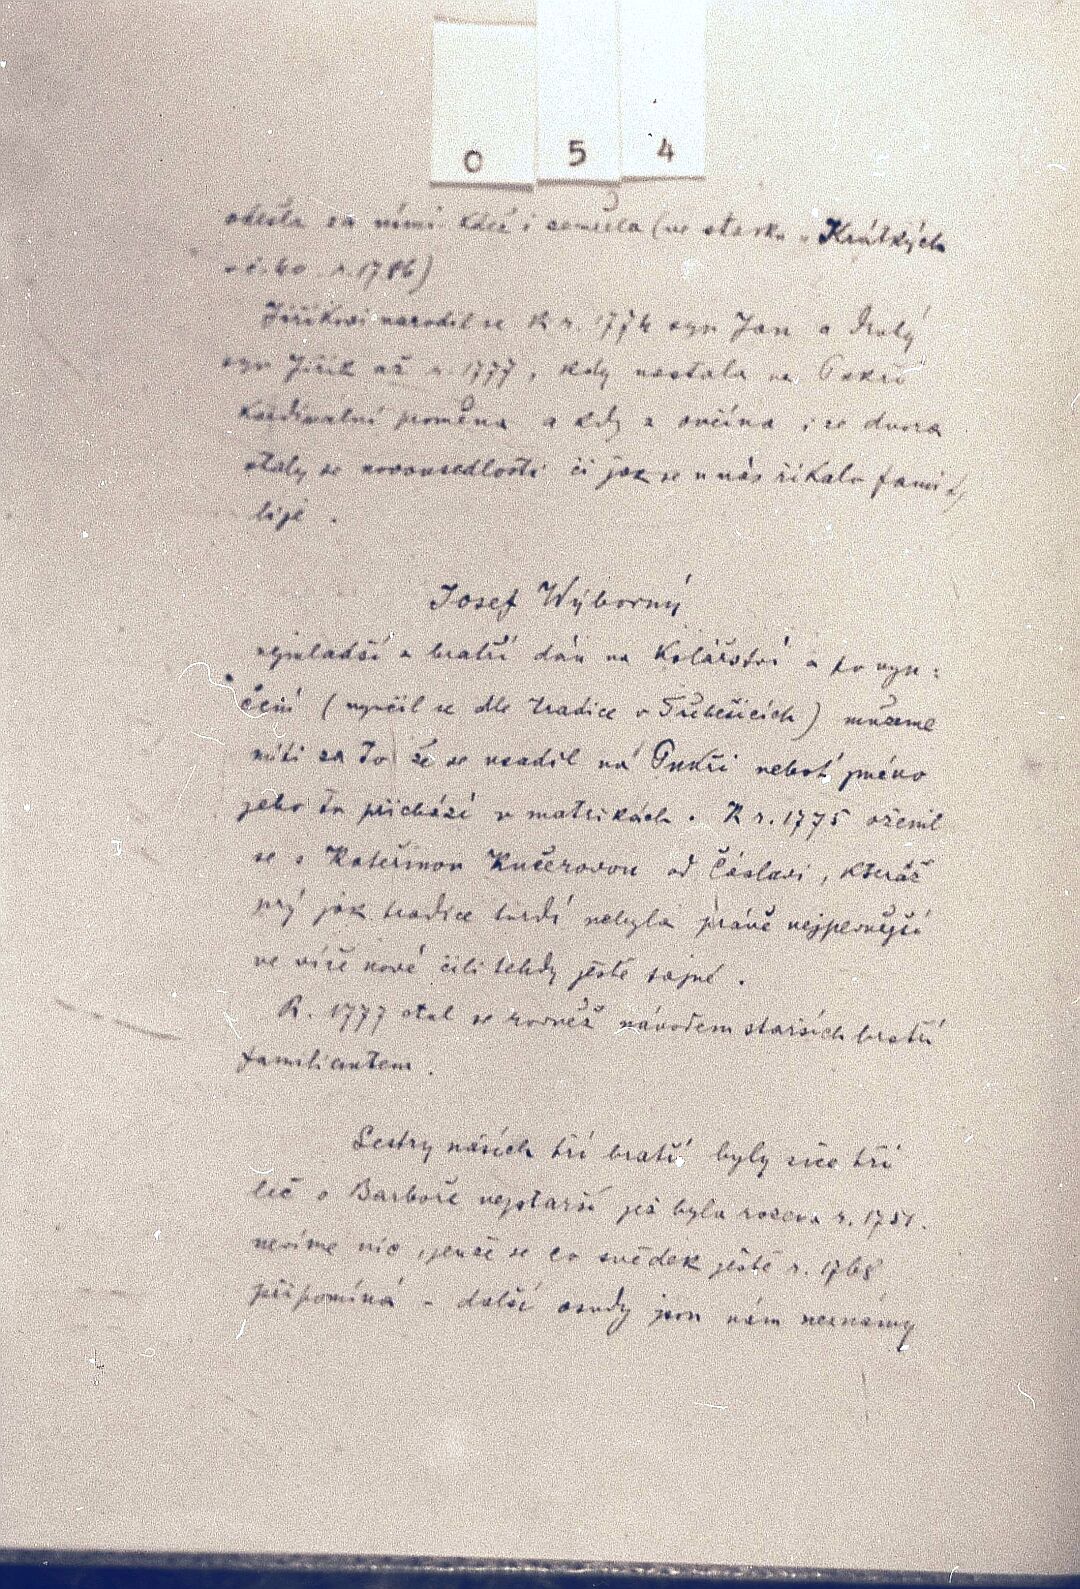 0 5 4
odešla za nimi kdež i zemřela (ve statku u Krátkých
č. 40 r. 1786)
Jiříkovi narodil se R r. 1774 syn Jan a druhý
syn Jiřík až r. 1777, kdy nastala na Pukři
kardinální proměna a kdy z ovčína i ze dvora
staly se novousedlosti či jak se u nás říkalo fami
lije.
Josef Wýborný
nejmladší z bratří dán na kolářství a po vyu:
čení (vyučil se dle tradice v Třebešicích) můžeme
míti za to že se usadil na Pukři neboť jméno
jeho tu přichází v matrikách. R r. 1775 oženil
se s Kateřinou Kučerovou od Čáslavi, kteráž
prý jak tradice tvrdí nebyla právě nejpevnější
ve víře nové čili tehdy ještě tajné.
R. 1777 stal se rovněž návodem starších bratří
familiantem.
Sestry našich tří bratří byly sice tři
leč o Barboře nejstarší jež byla rozena r. 1751.
nevíme nic, jenže se co svědek ještě r. 1768
připomíná – další osudy jsou nám neznámy